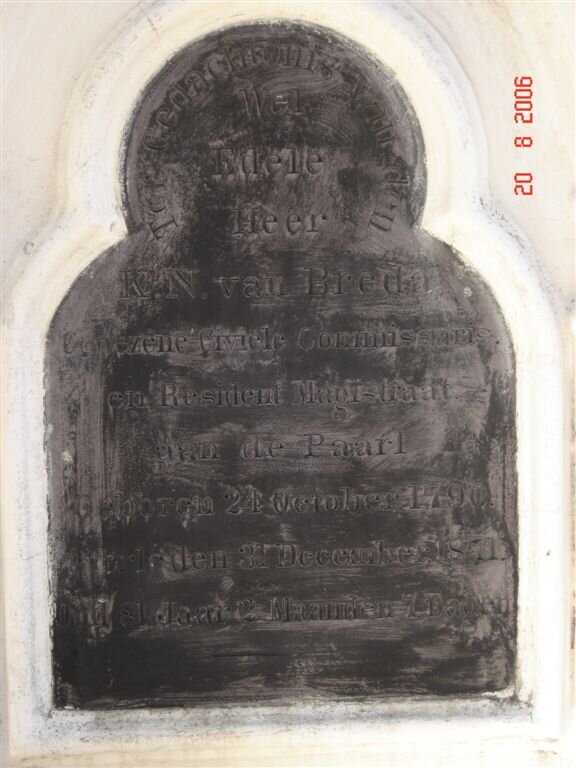 Ter Gedachtenis van d'n
Wel
Edele
Heer
K. N. van Breda
Gewezene Civiele Commissaris
en Resident Magistraat
aan de Paarl
Geboren 24 October 1790
Overleden 31 December 1871
Oud 81 Jaar 2 Maanden 7 Dagen
20 8 2006